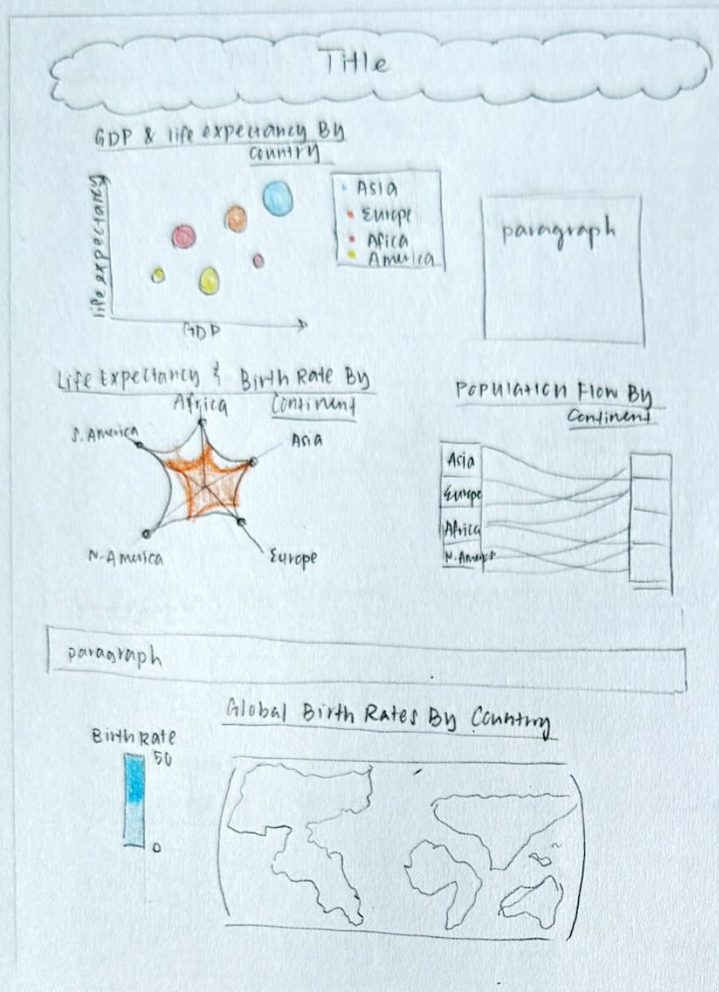 Title
GDP & life expectancy By
Country
life expectancy
GDP
Asia
Europe
Africa
America
paragraph
Life Expectancy & Birth Rate By
Continent
Africa
S. America
Asia
N. America
Europe
Population Flow By
Continent
Asia
Europe
Africa
N. America
paragraph
Global Birth Rates By Country
Birth Rate
50
0